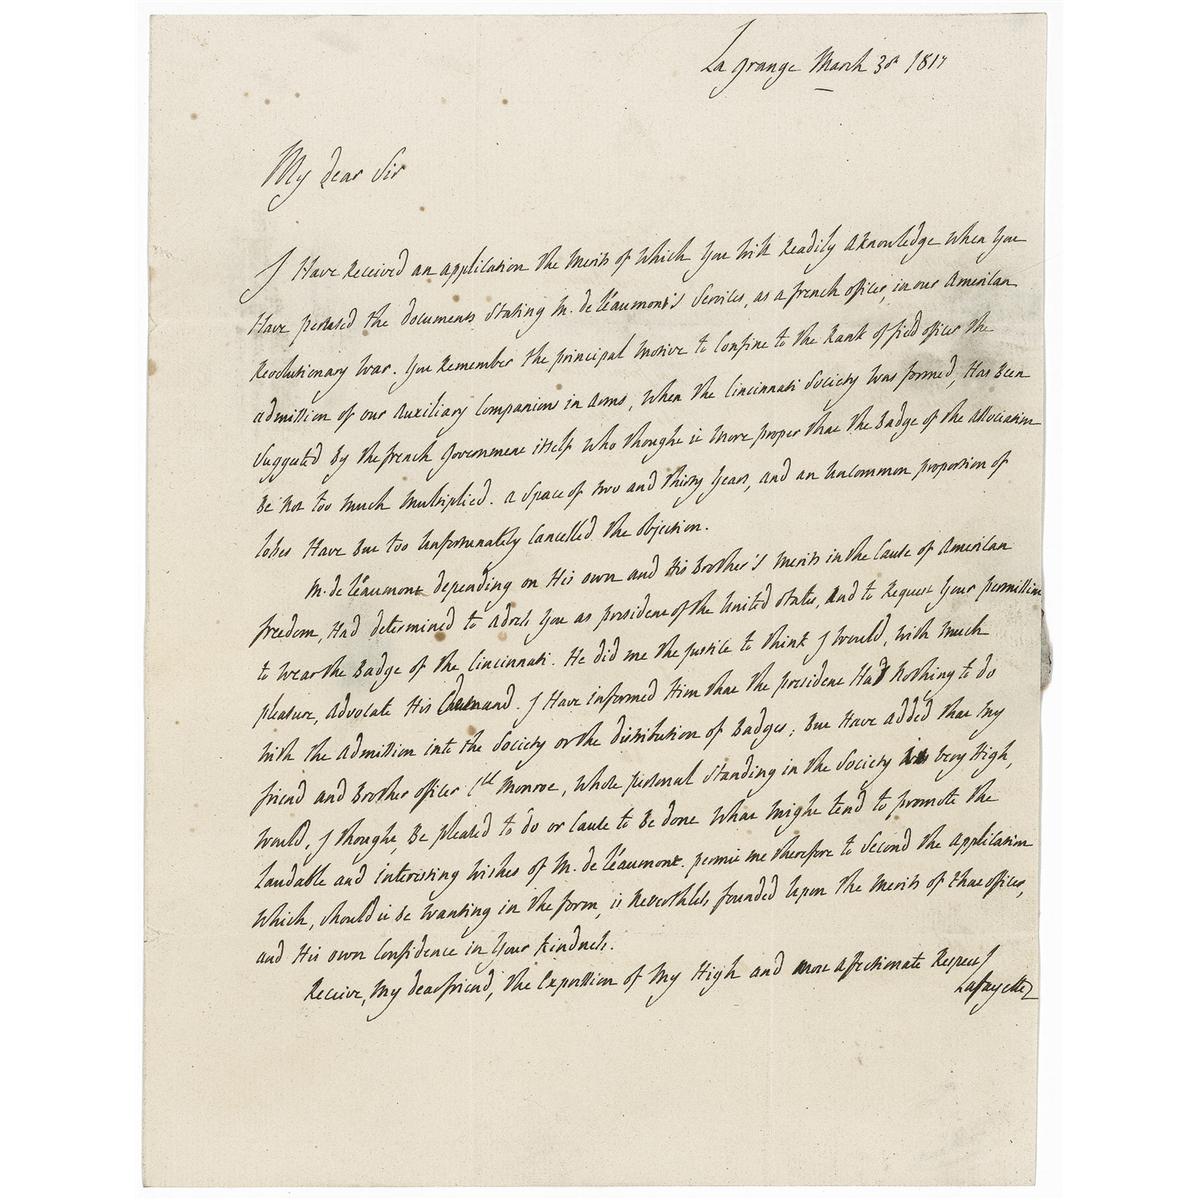 La Grange March 3d 1817
My dear Sir
I Have Received an application the Merits of Which You Will Readily Aknowledge When You
Have perused the documents Stating M. de Léaumont's Services, as a french officer, in our American
Revolutionary War. You Remember the principal Motive to Confine to the Rank of field officer the
admission of our Auxiliary Companions in Arms, When the Cincinnati Society Was formed, Has Been
Suggested By the french Government itself Who thought it More proper that the Badge of the Association
Be Not too Much Multiplied. a Space of two and thirty Years, and an Uncommon proportion of
losses Have But too Unfortunately Cancelled the objection.
M. de Léaumont depending on His own and His Brother's Merits in the Cause of American
freedom, Had determined to adress You as president of the United States, And to Request Your permission
to Wear the Badge of the Cincinnati. He did me the justice to think I Would, With Much
pleasure, advocate His demand. I Have informed Him that the president Had Nothing to do
With the Admission into the Society or the distribution of Badges; But Have added that My
friend and Brother officer Cll Monroe, Whose personal Standing in the Society is very High,
Would, I thought, Be pleased to do or Cause to Be done What Might tend to promote the
laudable and interesting Wishes of M. de Léaumont. permit me therefore to Second the Application
Which, should it Be Wanting in the form, is Neverthless founded Upon the Merits of that officer,
and His own Confidence in Your Kindness.
Receive, My dear friend, the Expression of My High and Most Affectionate Respect
Lafayette